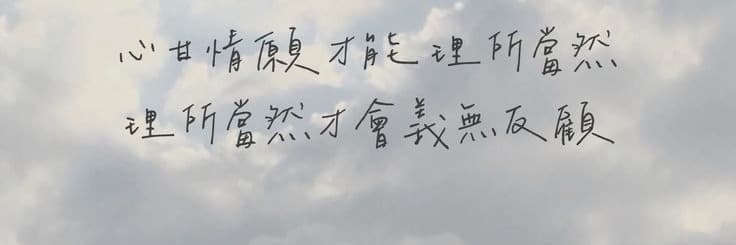 心甘情願才能理所當然
理所當然才會義無反顧